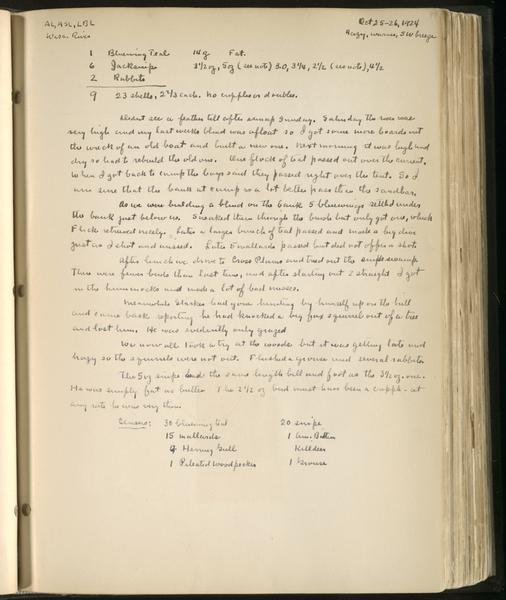 AL, ASL, LBL Oct 25-26, 1924
Wisc. River Hazy, warm, SW breeze
1 Bluewing Teal 14 oz Fat.
6 Jacksnipe 3 1/2 oz, 5 oz (see note) 3.0, 3 3/4, 2 1/2 (see note), 4 1/2
2 Rabbits
9 23 shells, 2 2/3 each. No cripples or doubles.
Didn't see a feather till after sunup Sunday. Saturday the river was
very high and my last weeks blind was afloat so I got some more boards out
the wreck of an old boat and built a new one. Next morning it was high and
dry so had to rebuild the old one. One flock of teal passed out over the current.
When I got back to camp the boys said they passed right over the tent. So I
am sure that the bank at camp is a lot better pass than the sandbar.
As we were building a blind on the bank 5 bluewings settled under
the bank just below us. Sneaked them through the brush but only got one, which
Flick retrieved nicely. Later a larger bunch of teal passed and made a big dive
just as I shot and missed. Later 5 mallards passed but did not offer a shot.
After lunch we drove to Cross Plains and tried out the snipe swamp.
There were fewer birds than last time, and after starting out 2 straight I got
in the hummocks and made a lot of bad misses.
Meanwhile Starker had gone hunting by himself up on the hill
and came back reporting he had knocked a big fox squirrel out of a tree
and lost him. He was evidently only grazed
We now all took a try at the woods but it was getting late and
hazy so the squirrels were not out. Flushed a grouse and several rabbits.
The 5 oz snipe had the same length bill and foot as the 3 1/2 oz. one.
He was simply fat as butter. The 2 1/2 oz bird must have been a cripple - at
any rate he was very thin.
Census: 30 bluewing teal 20 snipe
15 mallards 1 Am. Bittern
9 Herring Gull Killdeer
1 Pileated Woodpecker 1 Grouse